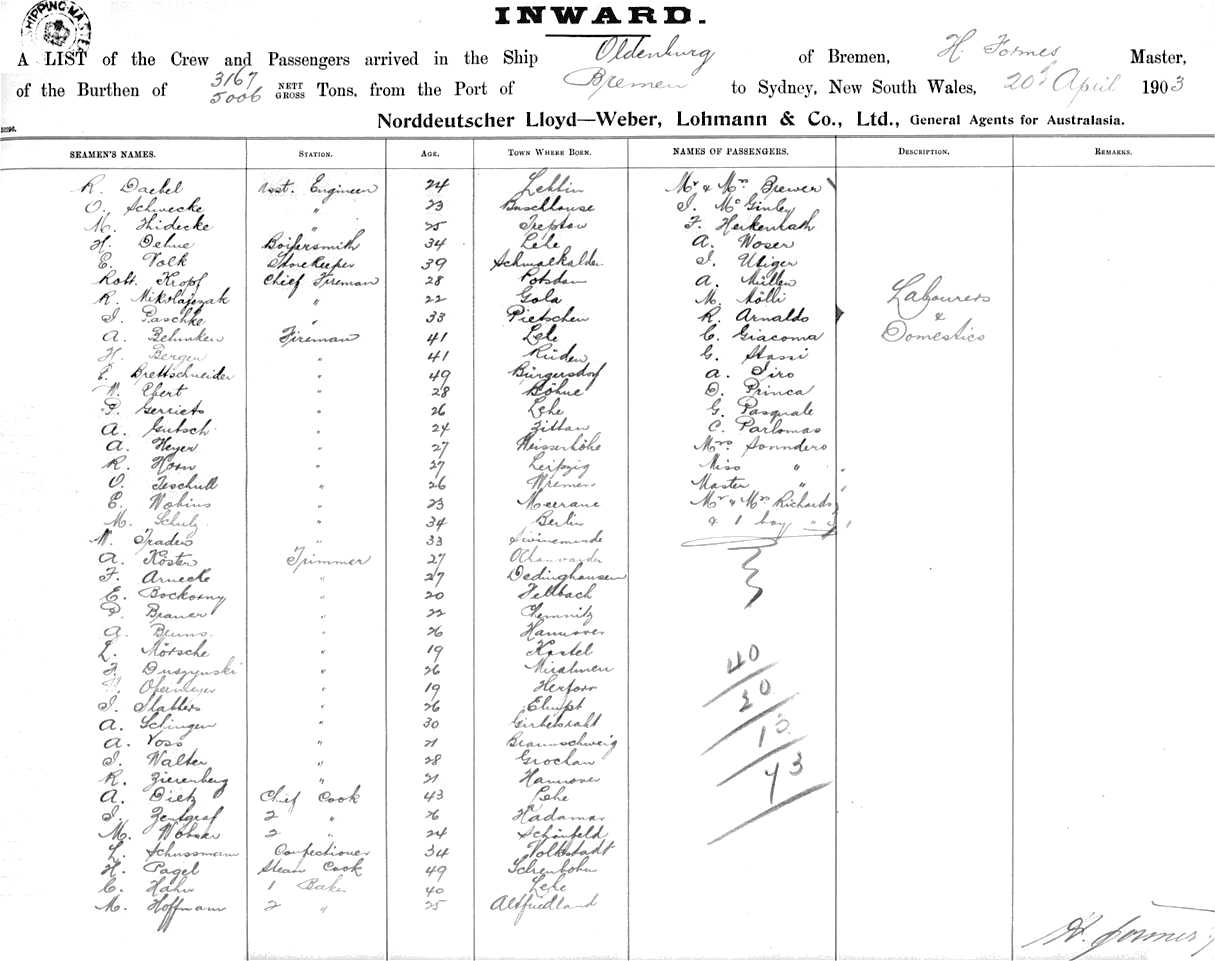 SHIPPING MASTER
INWARD.
A LIST of the Crew and Passengers arrived in the Ship Oldenburg of Bremen, H. Formes Master,
of the Burthen of 3167 NETT 5006 GROSS Tons, from the Port of Bremen to Sydney, New South Wales, 20th April 1903
Norddeutscher Lloyd—Weber, Lohmann & Co., Ltd., General Agents for Australasia.
SEAMEN'S NAMES. STATION. AGE. TOWN WHERE BORN. NAMES OF PASSENGERS. DESCRIPTION. REMARKS.
R. Daebel Asst. Engineer 24 Lehlin Mr & Mrs Brewer
O. Schwecke " 23 Buschhouse J. McGinley
M. Thidecke " 25 Treptow F. Herkenrath
H. Dehne Boilersmith 34 Lehe A. Woser
E. Volk Storekeeper 39 Schmalkalden J. Utiger
Robt. Kropf Chief Fireman 28 Potsdam A. Müller
R. Mikolajczak " 22 Gola M. Mölli Labourers
J. Paschke " 33 Pietschen R. Arnaldo &
A. Behnken Fireman 41 Lehe C. Giacoma Domestics
H. Bergen " 41 Rüden G. Stassi
E. Brettschneider " 49 Bürgersdorf A. Siro
W. Ebert " 28 Böhne D. Princa
P. Gerriets " 26 Lehe G. Pasquale
A. Gutsch " 24 Zittau C. Parlomas
A. Heyer " 27 Weisserhöhe Mrs Sounders
R. Horn " 27 Leipzig Miss "
O. Teschull " 26 Wremen Master "
E. Wobins " 23 Meerane Mr & Mrs Richards
M. Schulz " 34 Berlin & 1 boy "
W. Traders " 33 Swinemünde
A. Köster Trimmer 27
F. Arnecke " 27 Dedinghausen
E. Bockorny " 20 Fellbach
P. Brauer " 22 Chemnitz
A. Bruns " 26 Hannover
L. Mörsche " 19 Kastel
F. Duszynski " 26
Obermeyer " 19 Herford 40
J. Slabbers " 26 Elmpt 20
A. Schingen " 30 Girbelsrath
A. Voss " 21 Braunschweig 13
J. Walter " 28 Grochau
R. Zierenberg " 21 Hannover 73
A. Dietz Chief Cook 43 Lehe
J. Zentgraf 2 " 26 Hadamar
M. 2 " 24 Schönfeld
L. Schussmann Confectioner 34 Volkstadt
H. Pagel Steam Cook 49
C. Hahn 1 Baker 40 Lehe
M. Hoffmann 2 " 25 Altfriedland
H. Formes